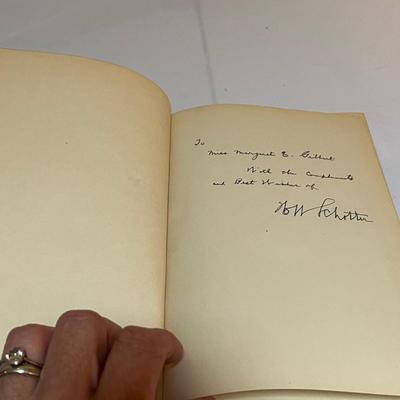 To
Miss Margaret E. Gilbert
With the Compliments
and Best Wishes of
H W Schotter